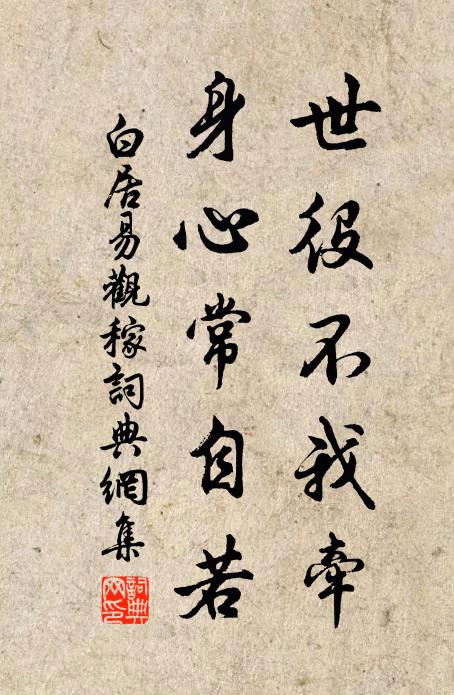 世役不我牽
身心常自若
白居易觀稼詞典網集
詞典網印